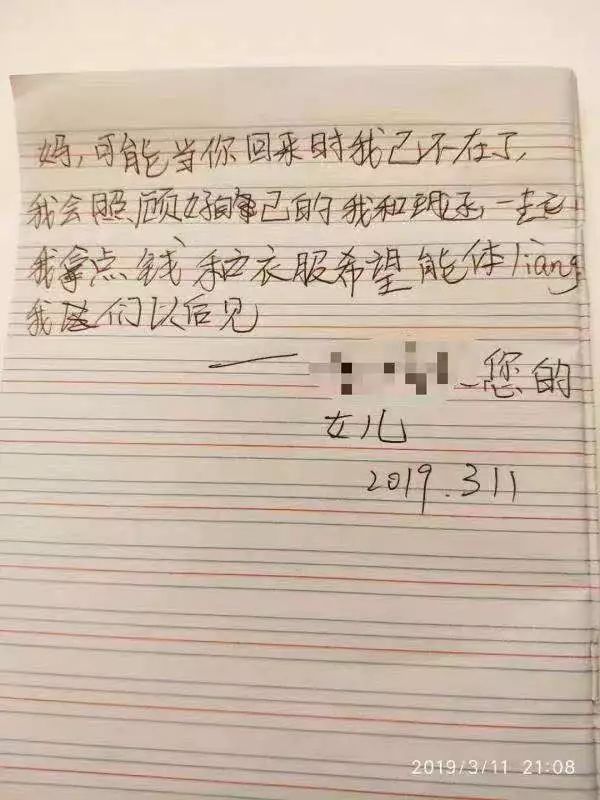 妈,可能当你回来时我已不在了,
我会照顾好自己的 我和 一走
我拿点钱和衣服希望能体liang
我 们以后见
—— 您的
女儿
2019.311
2019/3/11 21:08